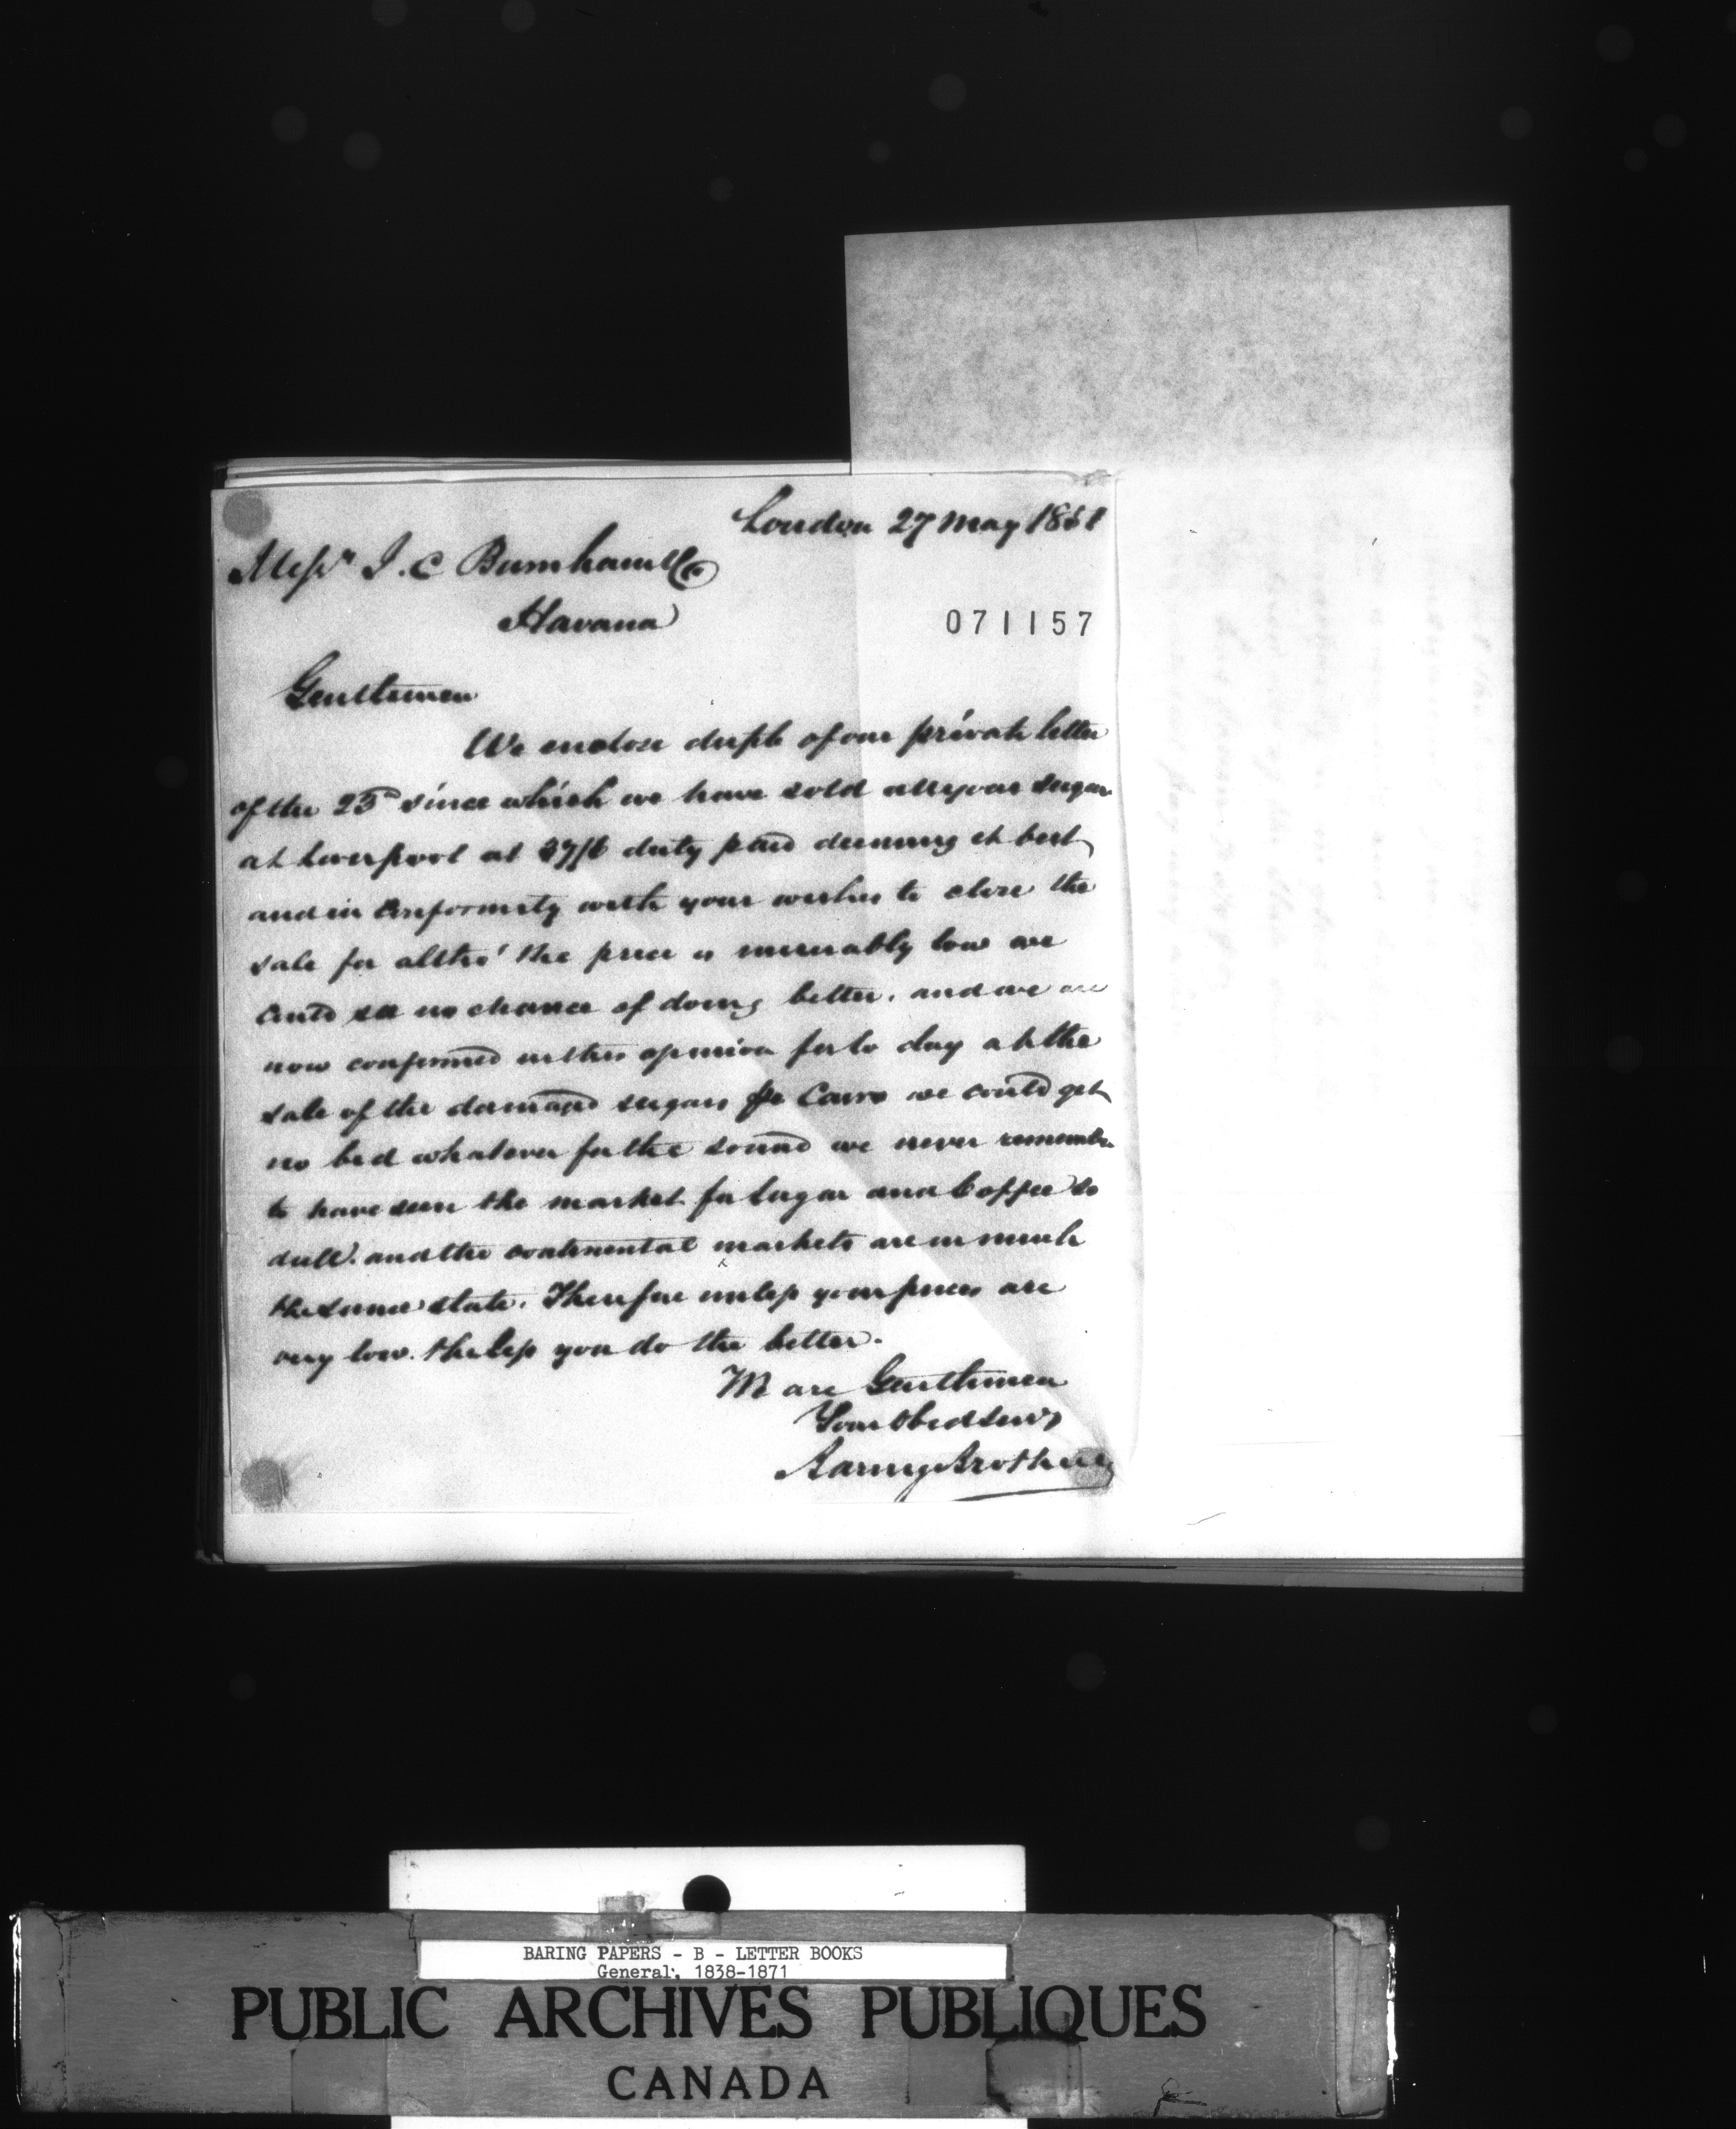 London 27 May 1851
Messrs J. C Burnham & Co
Havana
071157
Gentlemen
We enclose dupte of our private letter
of the 23d since which we have sold all your sugar
at Liverpool at 37/6 duty paid deeming it best
and in conformity with your wishes to close the
sale for altho' the price is miserably low we
could see no chance of doing better, and we are
now confirmed in this opinion for to day at the
sale of the damaged sugars pr Cairo we could get
no bid whatever for the sound we never remember
to have seen the market for Sugar and Coffee so
dull. and the continental markets are in much
the same state. Therefore unless your prices are
very low. the less you do the better.
We are Gentlemen
Your Obed Servts
Baring Brothers
BARING PAPERS - B - LETTER BOOKS
General, 1838-1871
PUBLIC ARCHIVES PUBLIQUES
CANADA